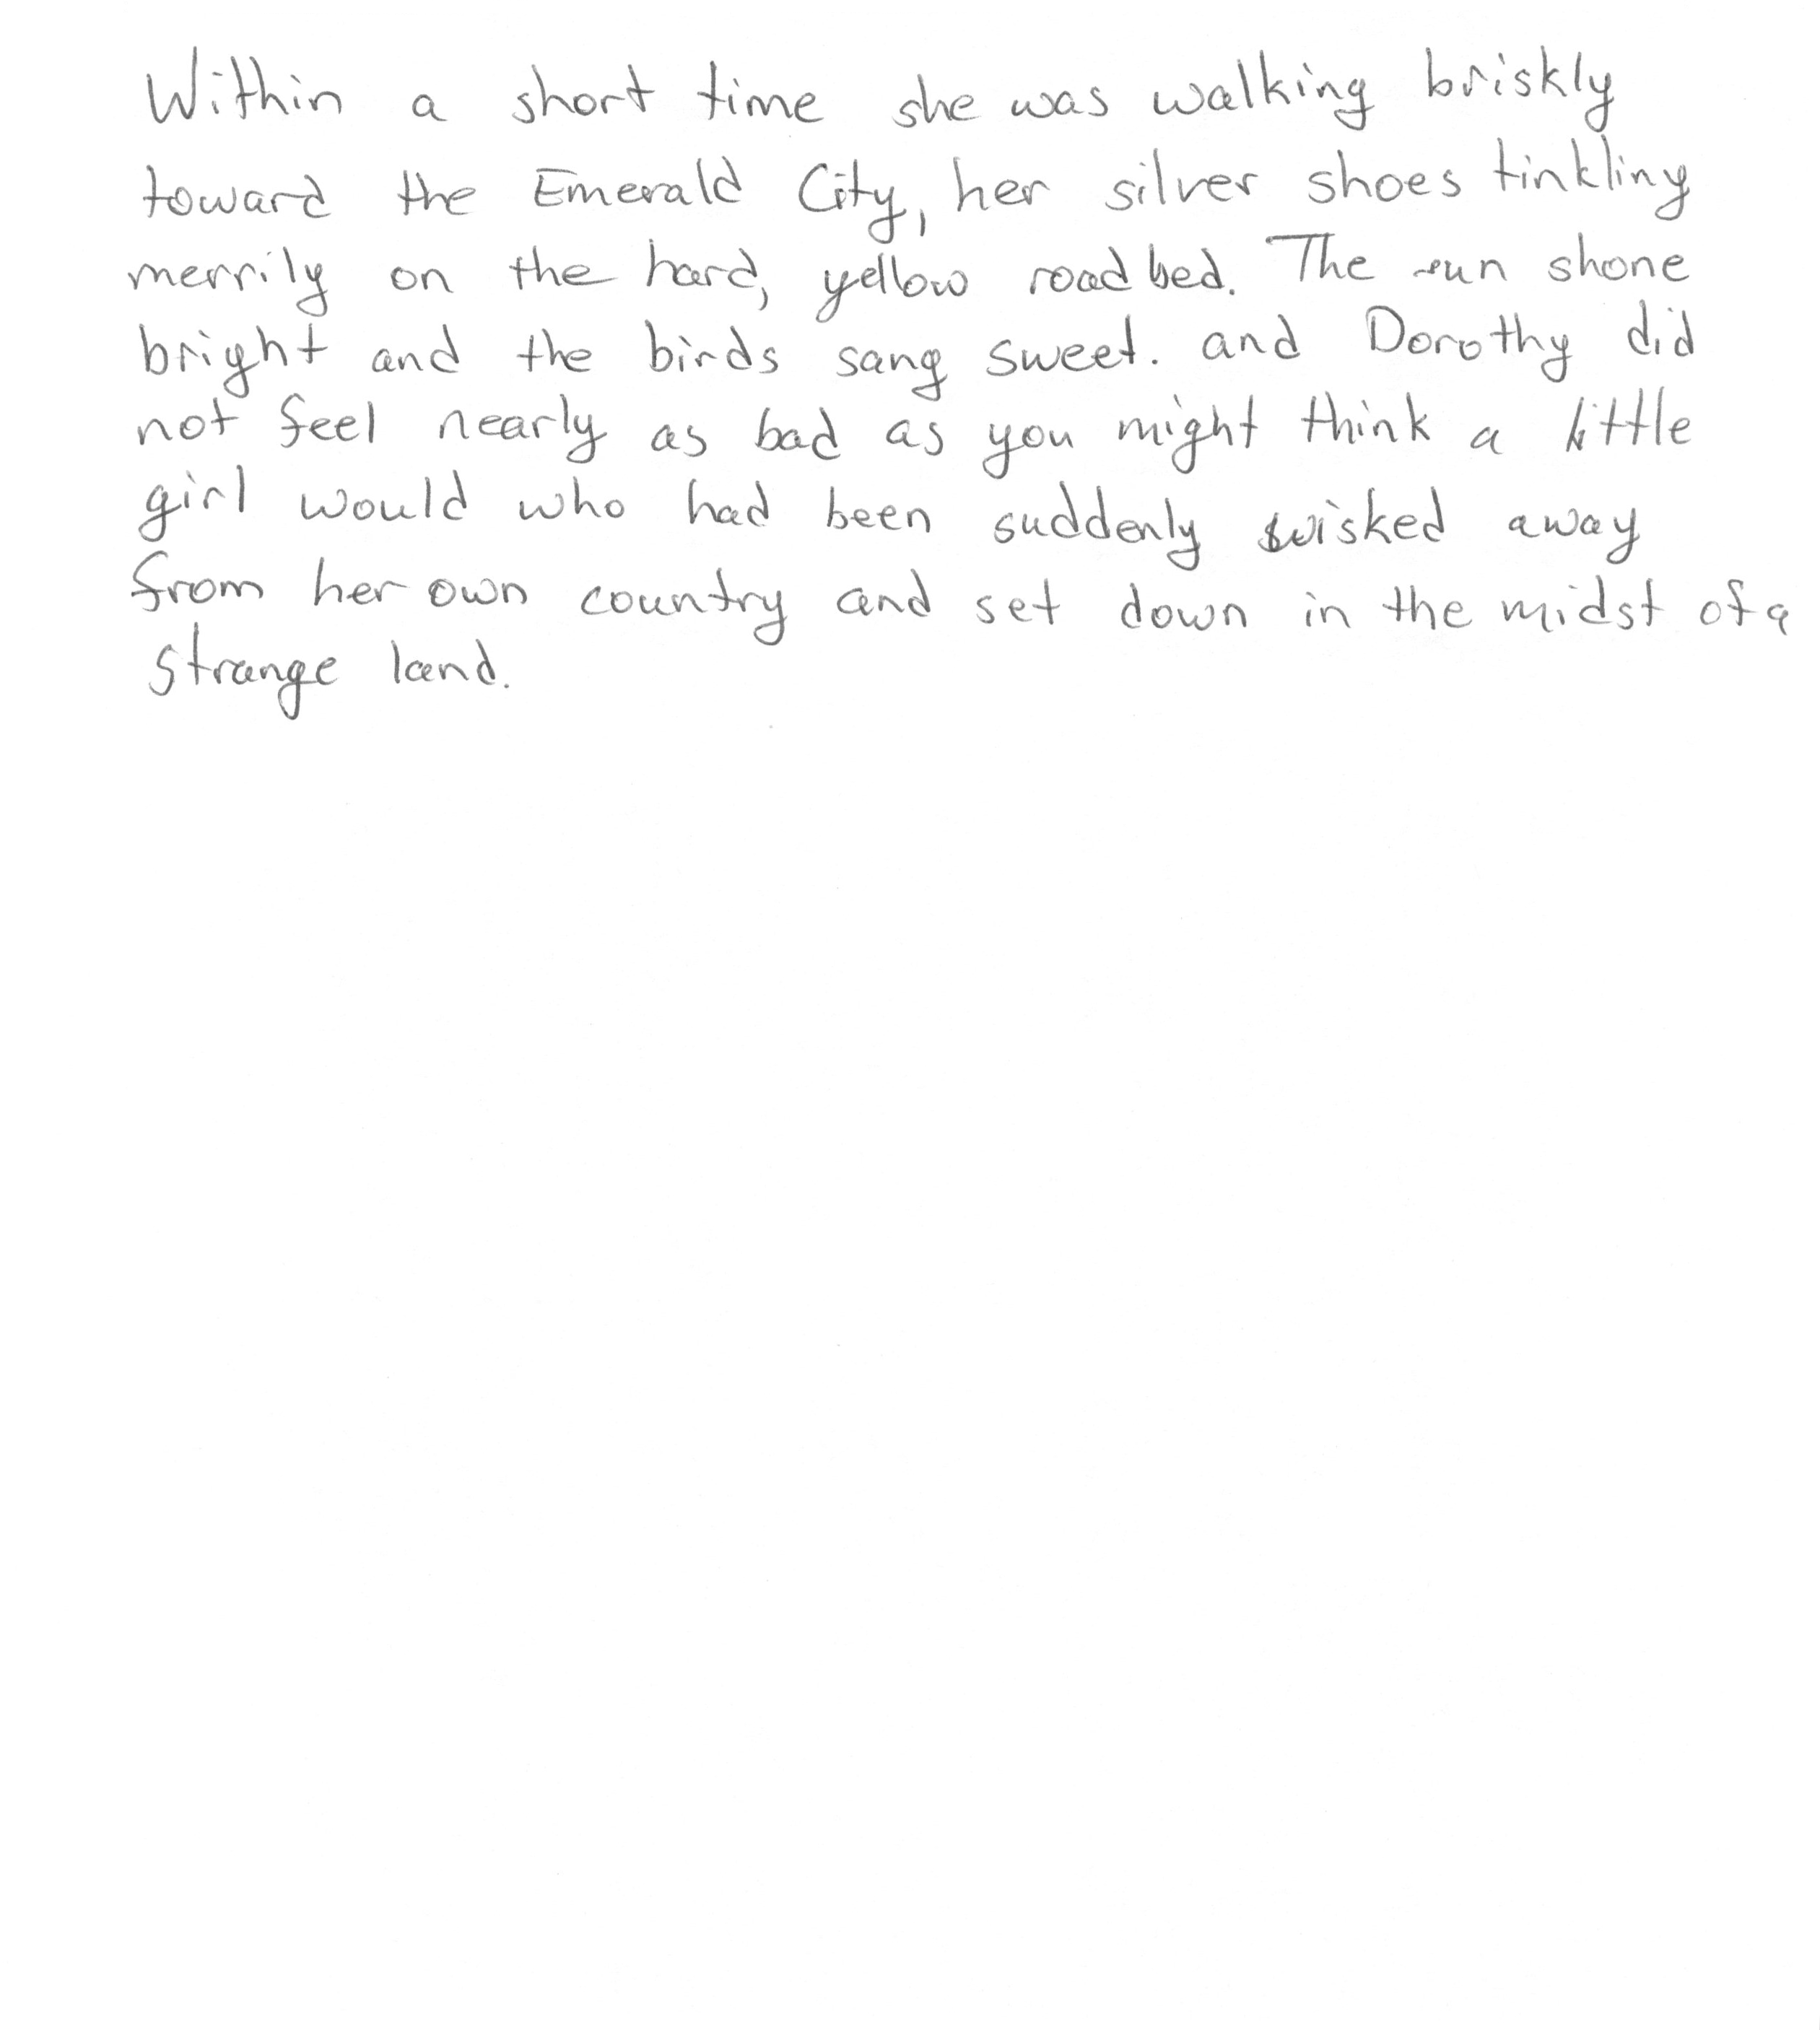 Within a short time she was walking briskly
toward the Emerald City, her silver shoes tinkling
merrily on the hard, yellow road bed. The sun shone
bright and the birds sang sweet. and Dorothy did
not feel nearly as bad as you might think a little
girl would who had been suddenly swisked away
from her own country and set down in the midst of a
strange land.